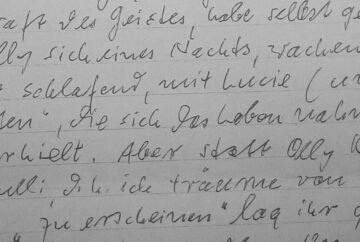 raft des Geistes, habe selbst ge
lly sich eines Nachts, wachen
schlafend, mit Lucie (un
en", die sich das haben nahm
rhielt. Aber statt Olly
ulli, d.h. ich träume von
"zu erscheinen" lag ihr